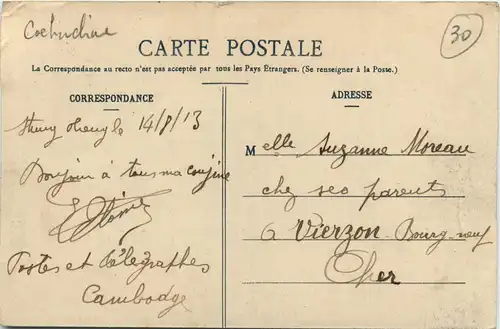 Cochinchine
30
CARTE POSTALE
La Correspondance au recto n'est pas acceptée par tous les Pays Étrangers. (Se renseigner à la Poste.)
CORRESPONDANCE
Stung Treng le 14/8/13
Bonjour à tous ma cousine
Postes et télégraphes
Cambodge
ADRESSE
Melle Suzanne Moreau
chez ses parents
à Vierzon-Bourg-neuf
Cher